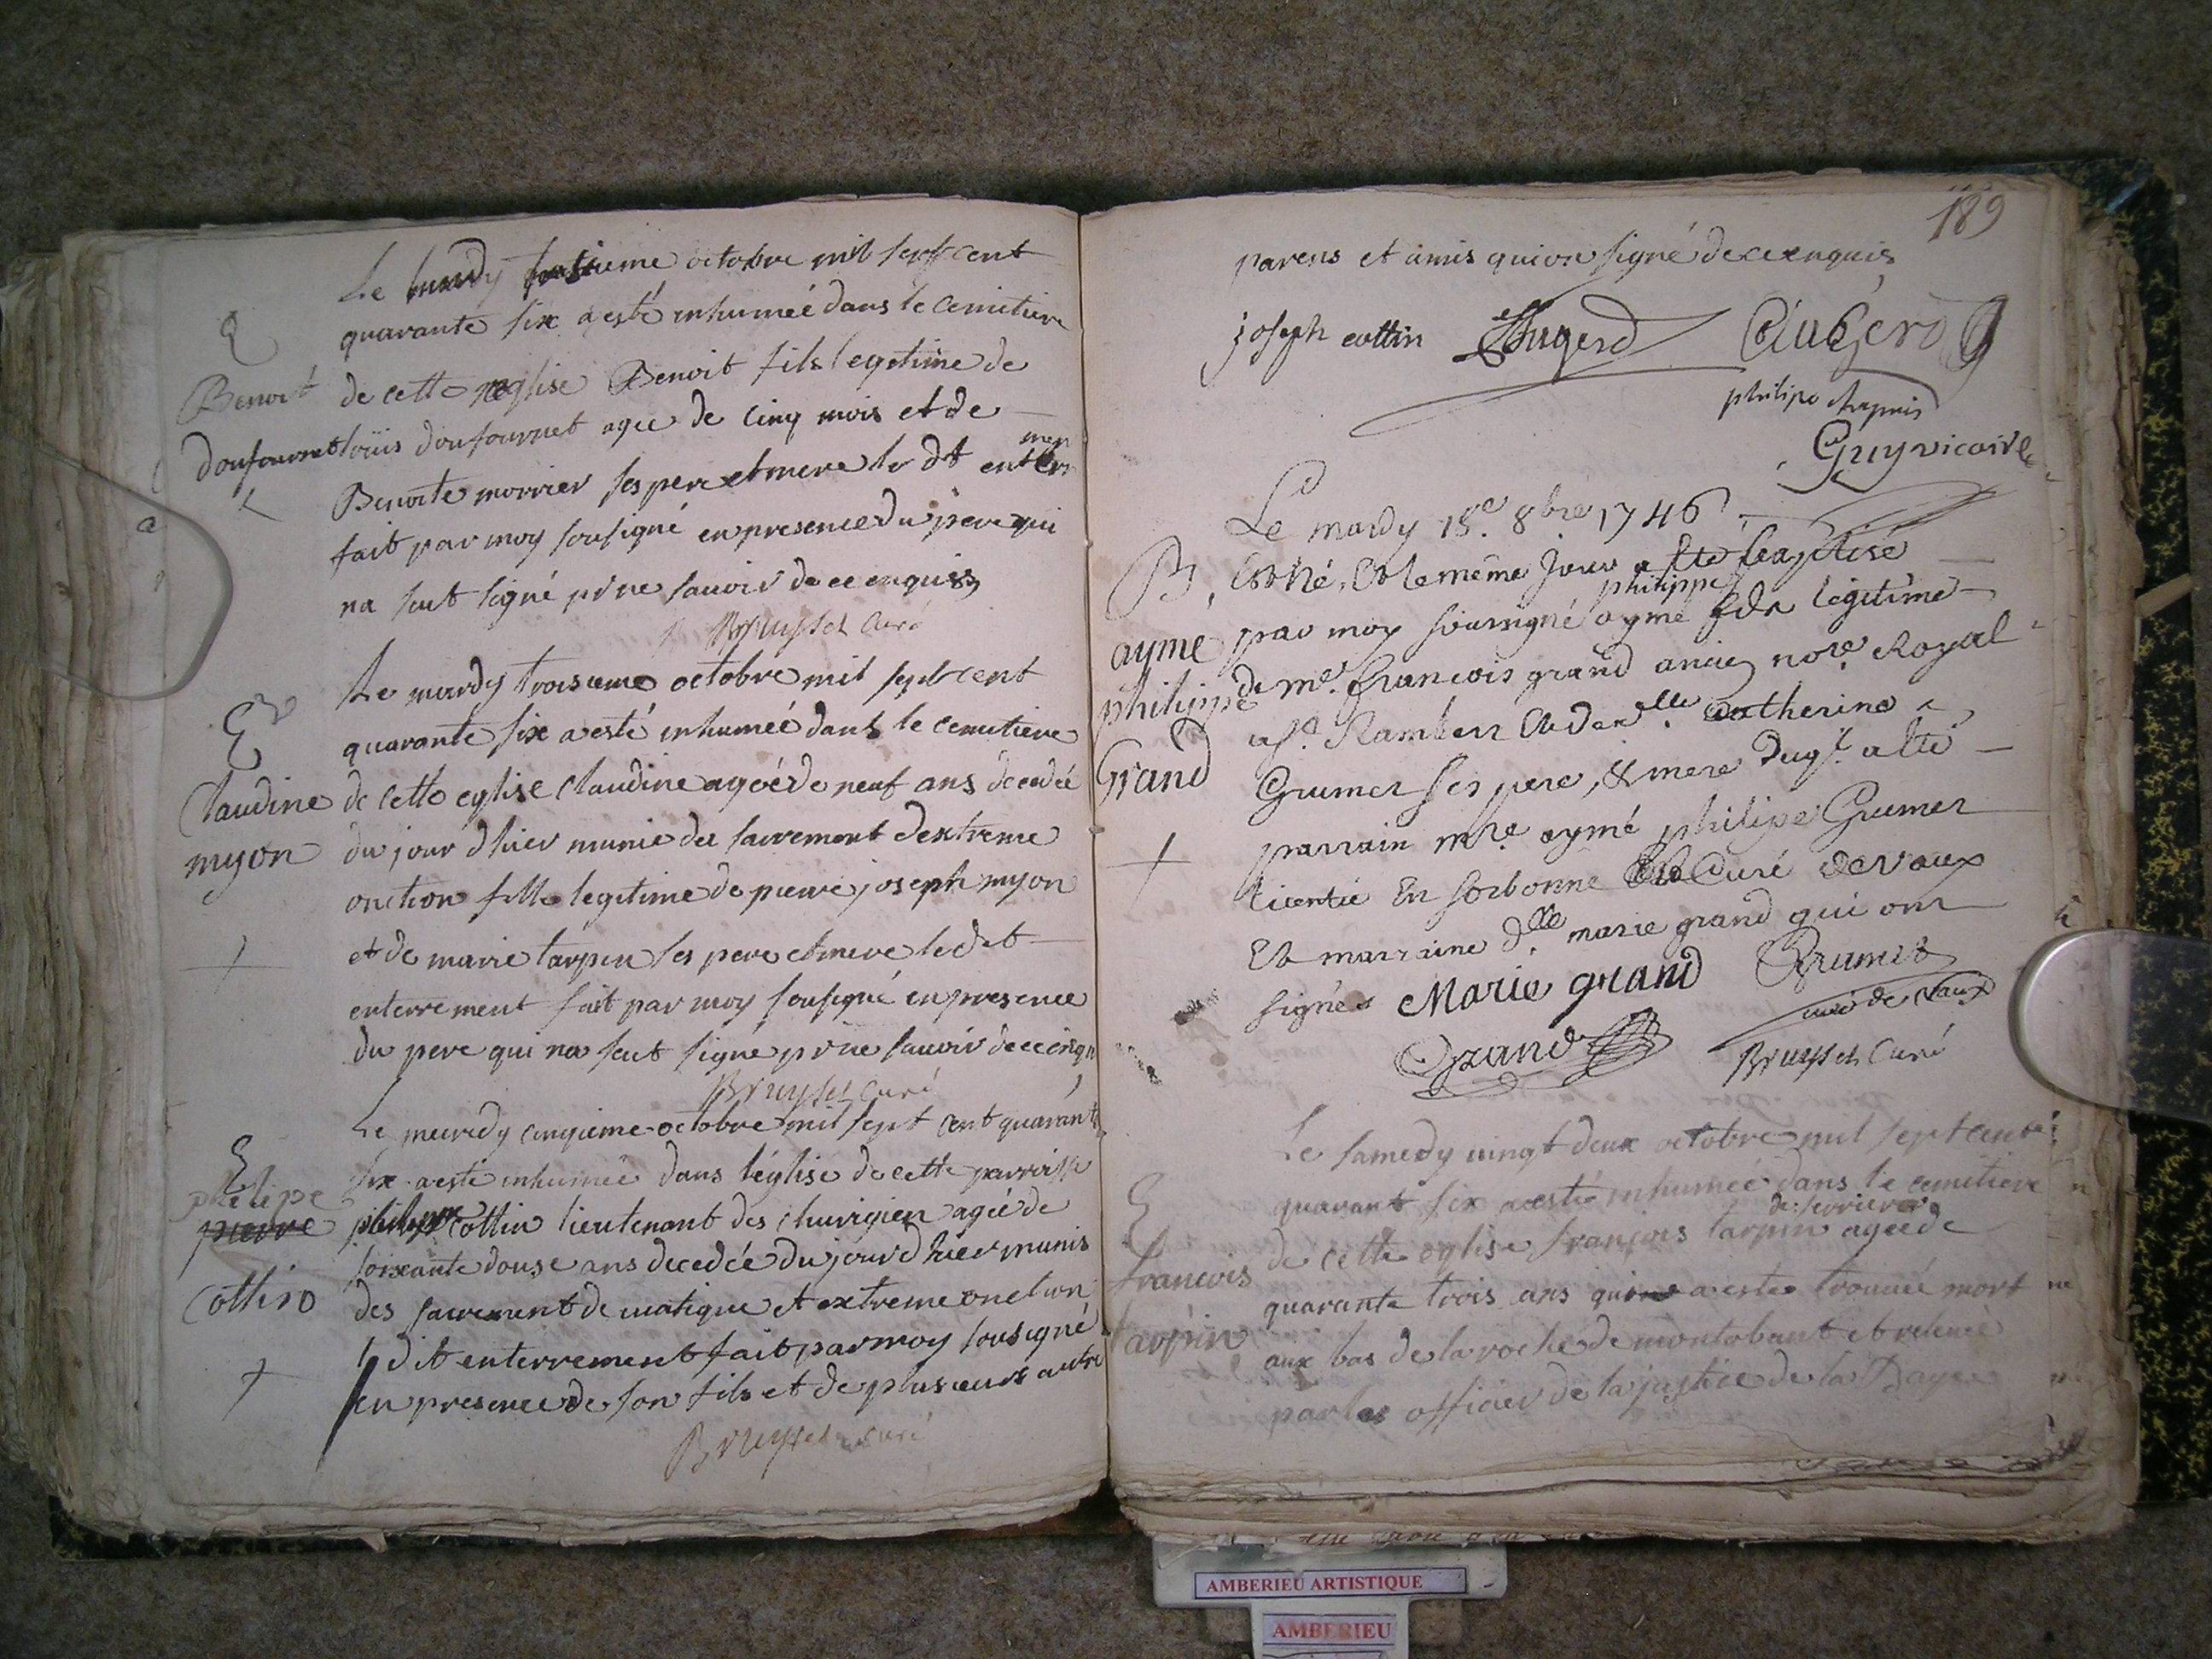 Le octobre mil sept cent
quarante six a esté inhumée dans le cemitiere
Benoit de cette eglise Benoit fils legetime de
doufournet loüis doufournet agée de cinq mois et de
Benoite morrier ses pere et mere le dt enterrement
fait par moy sousigné en presence du pere qui
na seut signé pr ne savoir de ce enquis
Bruyset Curé
Le mardy troisieme octobre mil sept cent
E
quarante six a esté inhumée dans le cemitiere
Claudine de cette eglise Claudine agée de neuf ans decedée
myon du jour dhier munie du sacrement dextreme
onction fille legetime de pierre joseph myon
et de marie tarpin ses pere et mere le dit
enterrement fait par moy sousigné en presence
du pere qui na seut signe pr ne sauoir de ce enqu
Bruyset Curé
Le mecredy cinquieme octobre mil sept cent quarant
E
six a esté inhumée dans léglise de cette parroisse
phelipe
pierre philippe Cottin lieutenant des chirigien agée de
soixante douse ans decedée du jour dhier munis
Cottin des sacrement de uiatique et extreme onction
le dit enterrement fait par moy sousigné
en presence de son fils et de plusieurs autre
Bruyset Curé
189
parens et amis qui on signé de ce enquis
joseph cottin Augerd Augerd
philipe chapuis
Guy vicaire
Le mardy 18e. 8bre 1746
B. Est né, Et le même jour a été baptisé
philippe
ayme par moy soussigné aymé fils légitime
philippe de me. françois grand ancien nore. Royal
a st. Rambert & de delle Catherine
Grand Grumet ses pere, & mere Dugl. a été
parrain mre. aymé philipe Grumet
licentié En sorbonne Curé de vaux
Et marraine dlle. marie grand qui ont
signés Marie grand Grumet
curé de vaux
Grand Bruyset Curé
Le samedy uingt deux octobre mil sept cent
E
quarant six a esté inhumée dans le cemitiere
de serrieres
francois de cette eglise françois tarpin agée de
quarante trois ans qui a este trouuée mort
tarpin aux bas de la roche de montabant et releuée
par les officier de la justice de la
AMBERIEU ARTISTIQUE
AMBERIEU